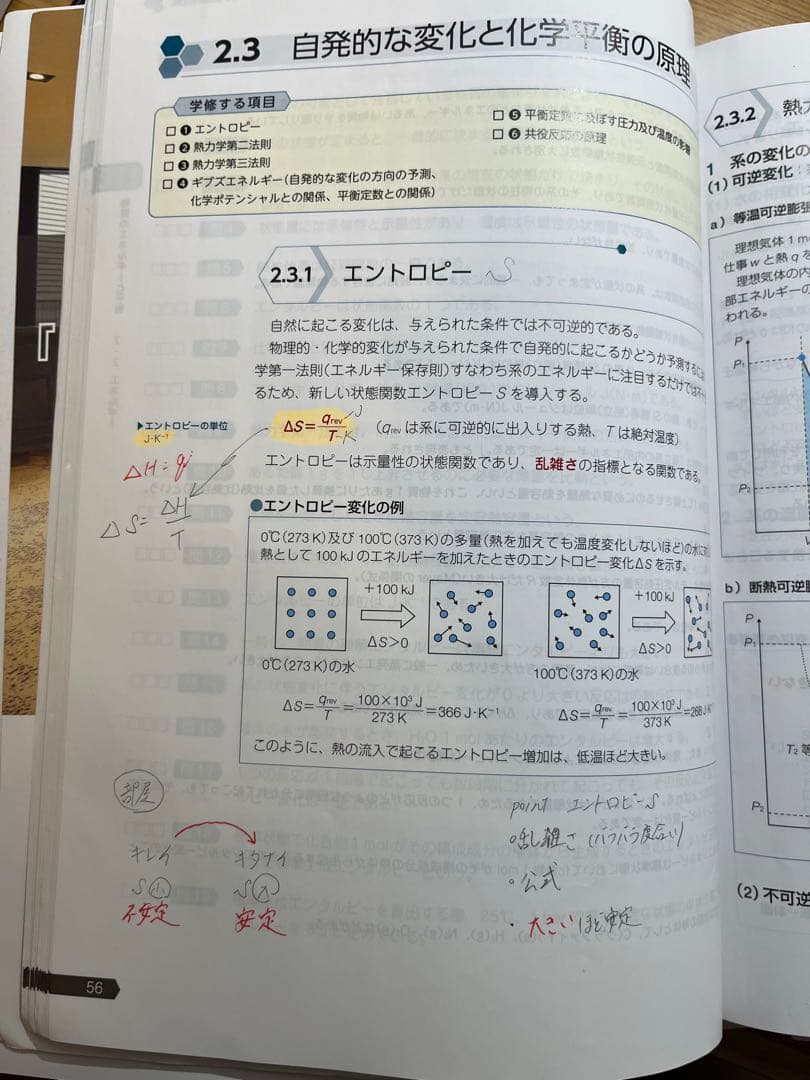 2.3 自発的な変化と化学平衡の原理
学修する項目
□ ❶ エントロピー
□ ❷ 熱力学第二法則
□ ❸ 熱力学第三法則
□ ❹ ギブズエネルギー(自発的な変化の方向の予測、
化学ポテンシャルとの関係、平衡定数との関係)
□ ❺ 平衡定数に及ぼす圧力及び温度の影響
□ ❻ 共役反応の原理
2.3.1 エントロピー S
自然に起こる変化は、与えられた条件では不可逆的である。
物理的・化学的変化が与えられた条件で自発的に起こるかどうか予測するには
学第一法則(エネルギー保存則)すなわち系のエネルギーに注目するだけでは
るため、新しい状態関数エントロピー S を導入する。
▶エントロピーの単位
J·K⁻¹
ΔS = qrev/T (qrev は系に可逆的に出入りする熱、T は絶対温度)
J
K
ΔH = q
ΔS = ΔH/T
エントロピーは示量性の状態関数であり、乱雑さの指標となる関数である。
●エントロピー変化の例
0℃(273 K)及び 100℃(373 K)の多量(熱を加えても温度変化しないほど)の水に
熱として 100 kJ のエネルギーを加えたときのエントロピー変化 ΔS を示す。
+100 kJ
ΔS>0
0℃(273 K)の水
+100 kJ
ΔS>0
100℃(373 K)の水
ΔS = qrev/T = 100×10³ J/273 K = 366 J·K⁻¹
ΔS = qrev/T = 100×10³ J/373 K = 268 J·K
このように、熱の流入で起こるエントロピー増加は、低温ほど大きい。
部屋
キレイ オタナイ
S小 S大
不安定 安定
point エントロピーS
・乱雑さ (バラバラ度合い)
・公式
・大きいほど安定
56
2.3.2 熱力
1 系の変化の
(1) 可逆変化:
a) 等温可逆膨張
理想気体 1 m
仕事 w と熱 q を
理想気体の内
部エネルギーの
われる。
P
P₁
P₂
b) 断熱可逆膨
P
P₁
T₂ 等
P₂
(2) 不可逆